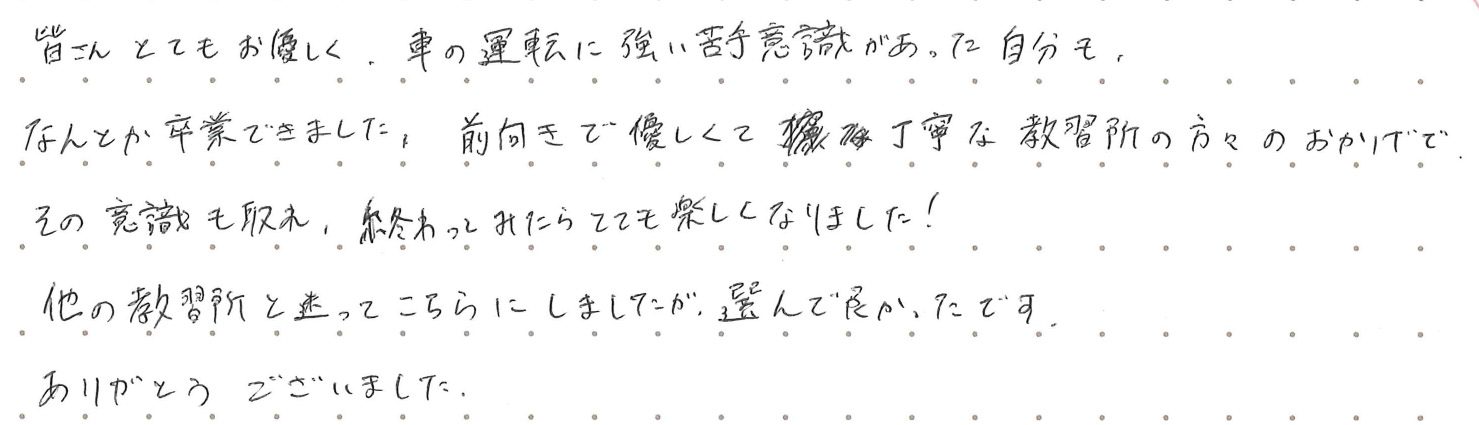 皆さんとてもお優しく、車の運転に強い苦手意識があった自分も、
なんとか卒業できました。前向きで優しくて丁寧な教習所の方々のおかげで、
その意識も取れ、終わってみたらとても楽しくなりました！
他の教習所と迷ってこちらにしましたが、選んで良かったです。
ありがとうございました。